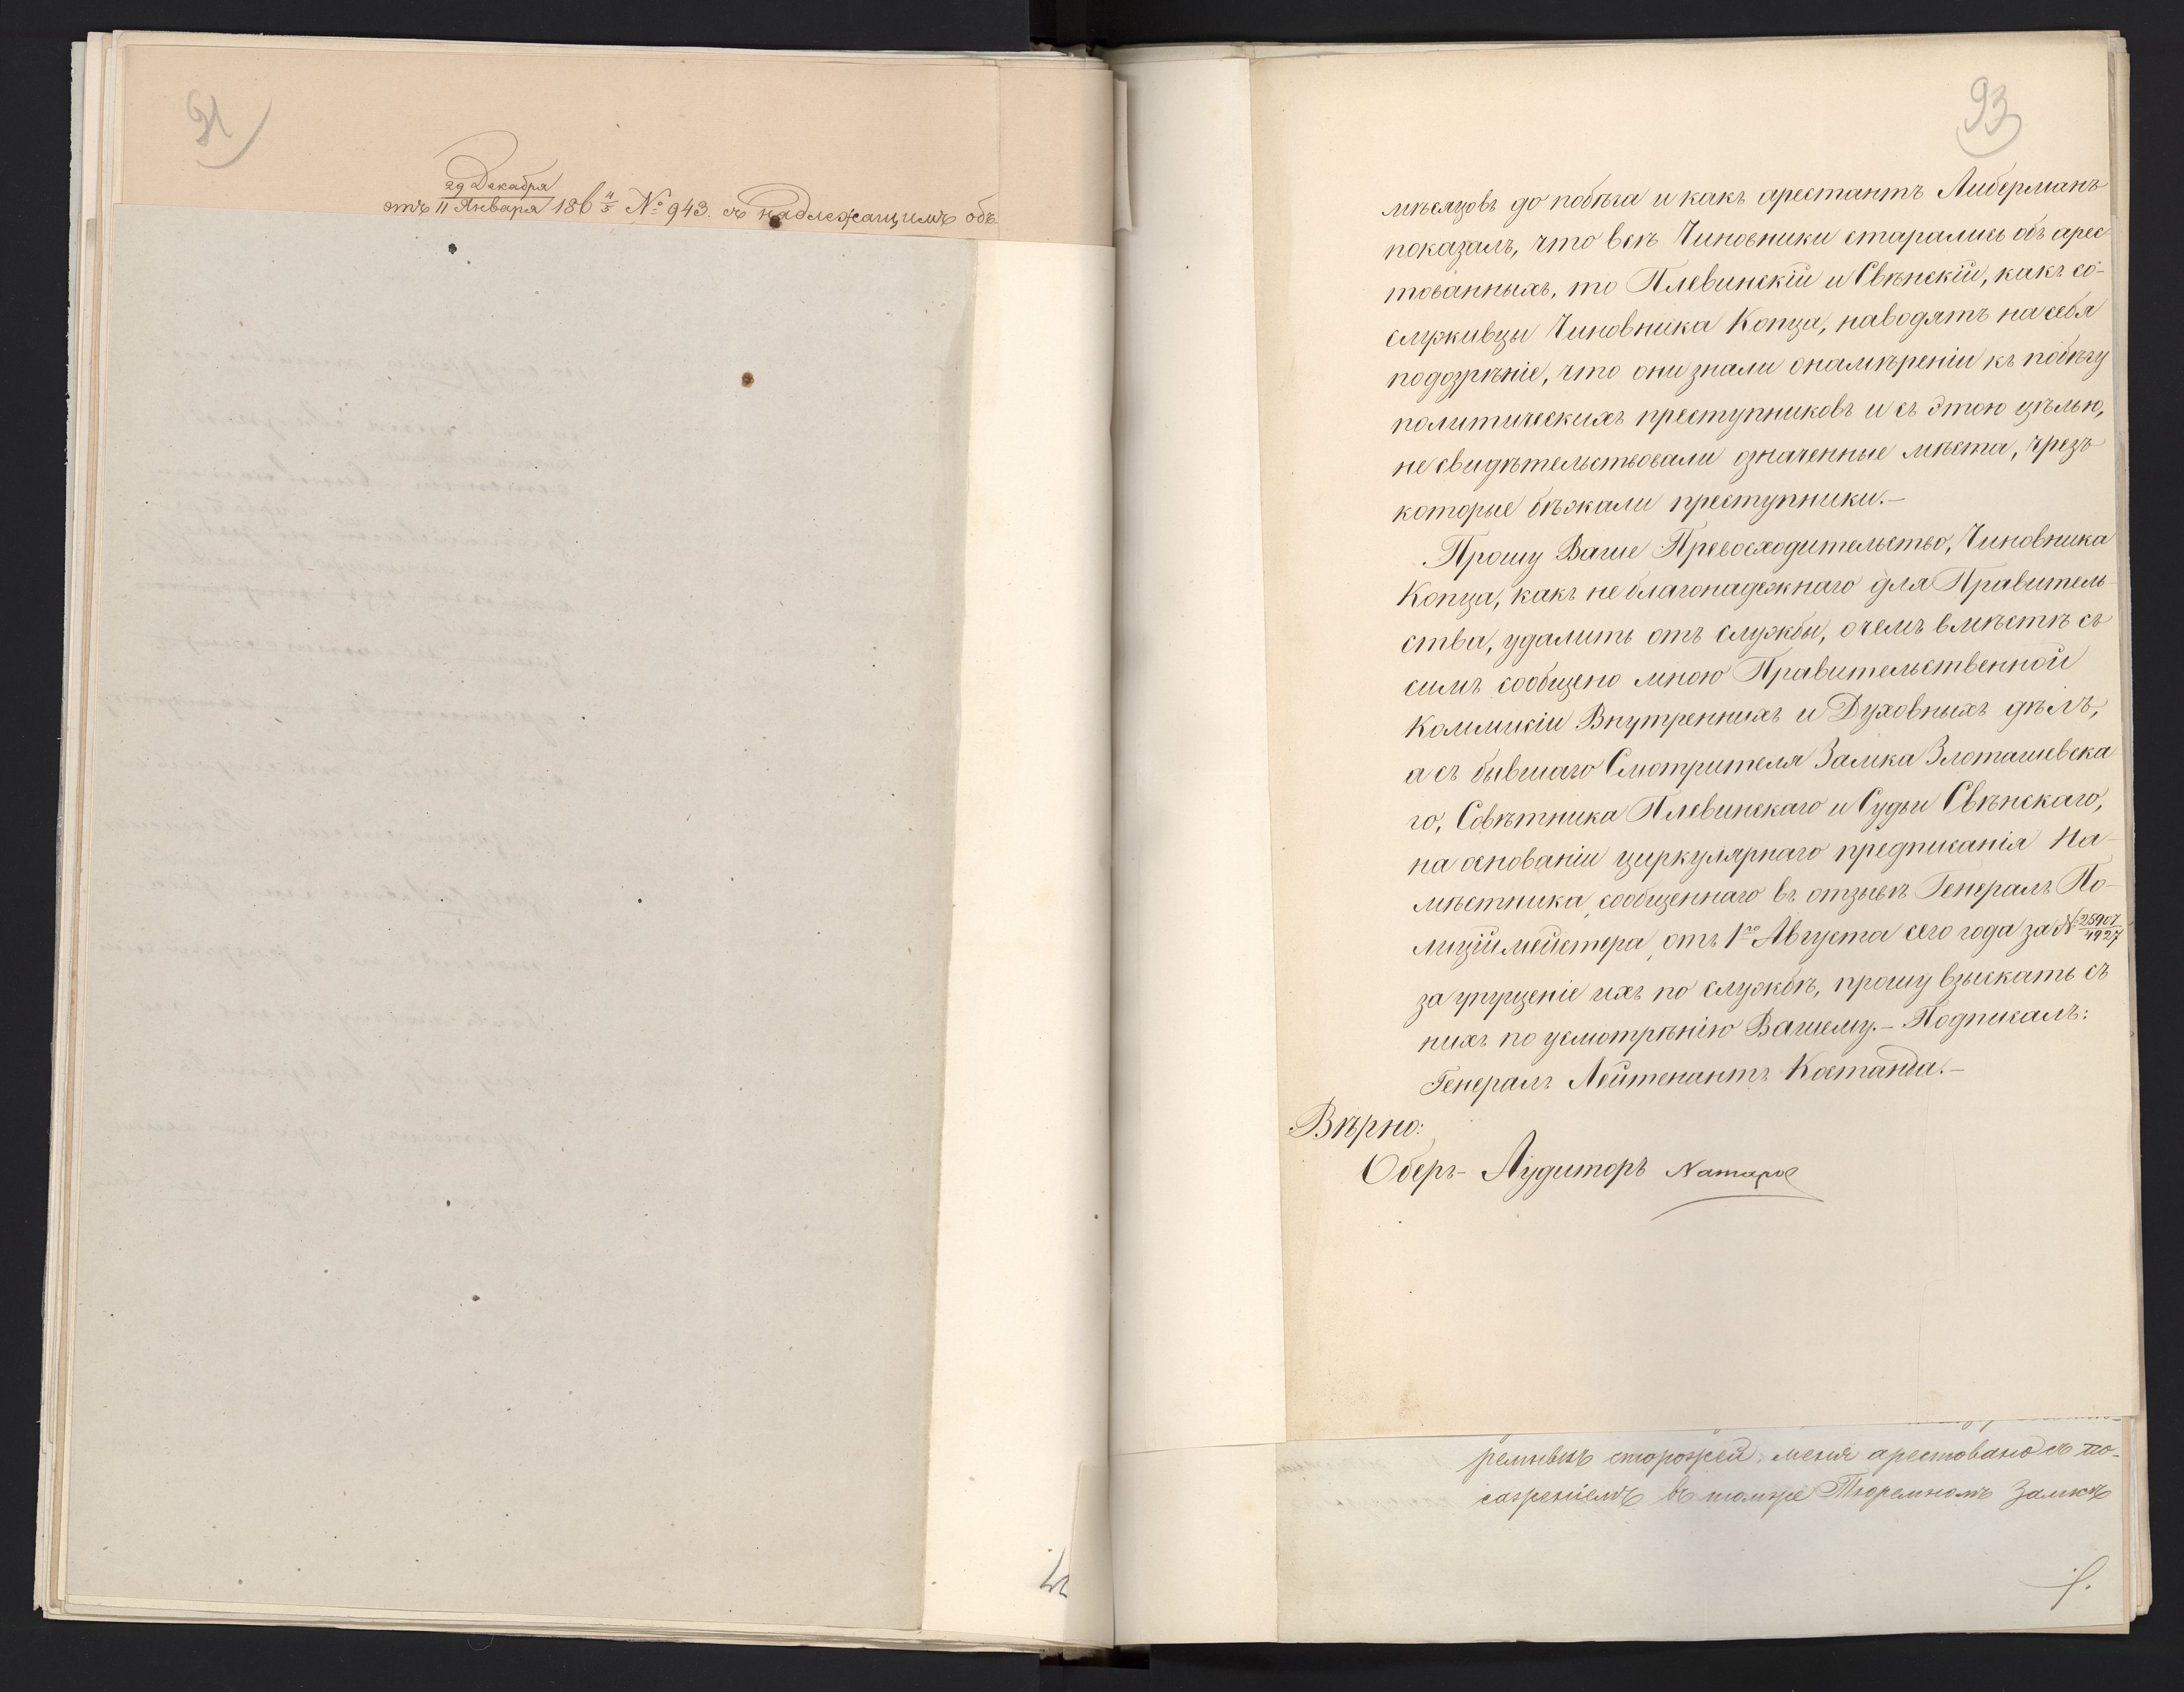 91
29 Декабря
отъ 11 Января 186 4/5 № 943. съ надлежащимъ объ
93
мѣсяцовъ до побѣга и какъ арестантъ Либерманъ
показалъ, что всѣ Чиновники старались объ арес-
тованныхъ, то Плевинскій и Свѣнскій, какъ со-
служивцы Чиновника Копца, наводятъ на себя
подозрѣніе, что они знали о намѣреніи къ побѣгу
политическихъ преступниковъ и съ этою цѣлью,
не свидѣтельствовали означенные мѣста, чрезъ
которые бѣжали преступники.—
Прошу Ваше Превосходительство, Чиновника
Копца, какъ не благонадежнаго для Правитель-
ства, удалить отъ службы, о чемъ вмѣстѣ съ
симъ сообщено мною Правительственной
Коммисіи Внутреннихъ и Духовныхъ дѣлъ,
а съ бывшаго Смотрителя Замка Злоташевска
го, Совѣтника Плевинскаго и Судьи Свѣнскаго,
на основаніи циркулярнаго предписанія На-
мѣстника, сообщеннаго въ отзывѣ Генералъ По-
лиціймейстера, отъ 1го Августа сего года за № 25907/4927
за упущеніе ихъ по службѣ, прошу взыскать съ
нихъ по усмотрѣнію Вашему.— Подписалъ:
Генералъ Лейтенантъ Костанда.—
Вѣрно:
Оберъ-Аудиторъ
ремныхъ сторожей, меня арестовано съ по-
сазреніемъ въ томже Тюремномъ Замкѣ